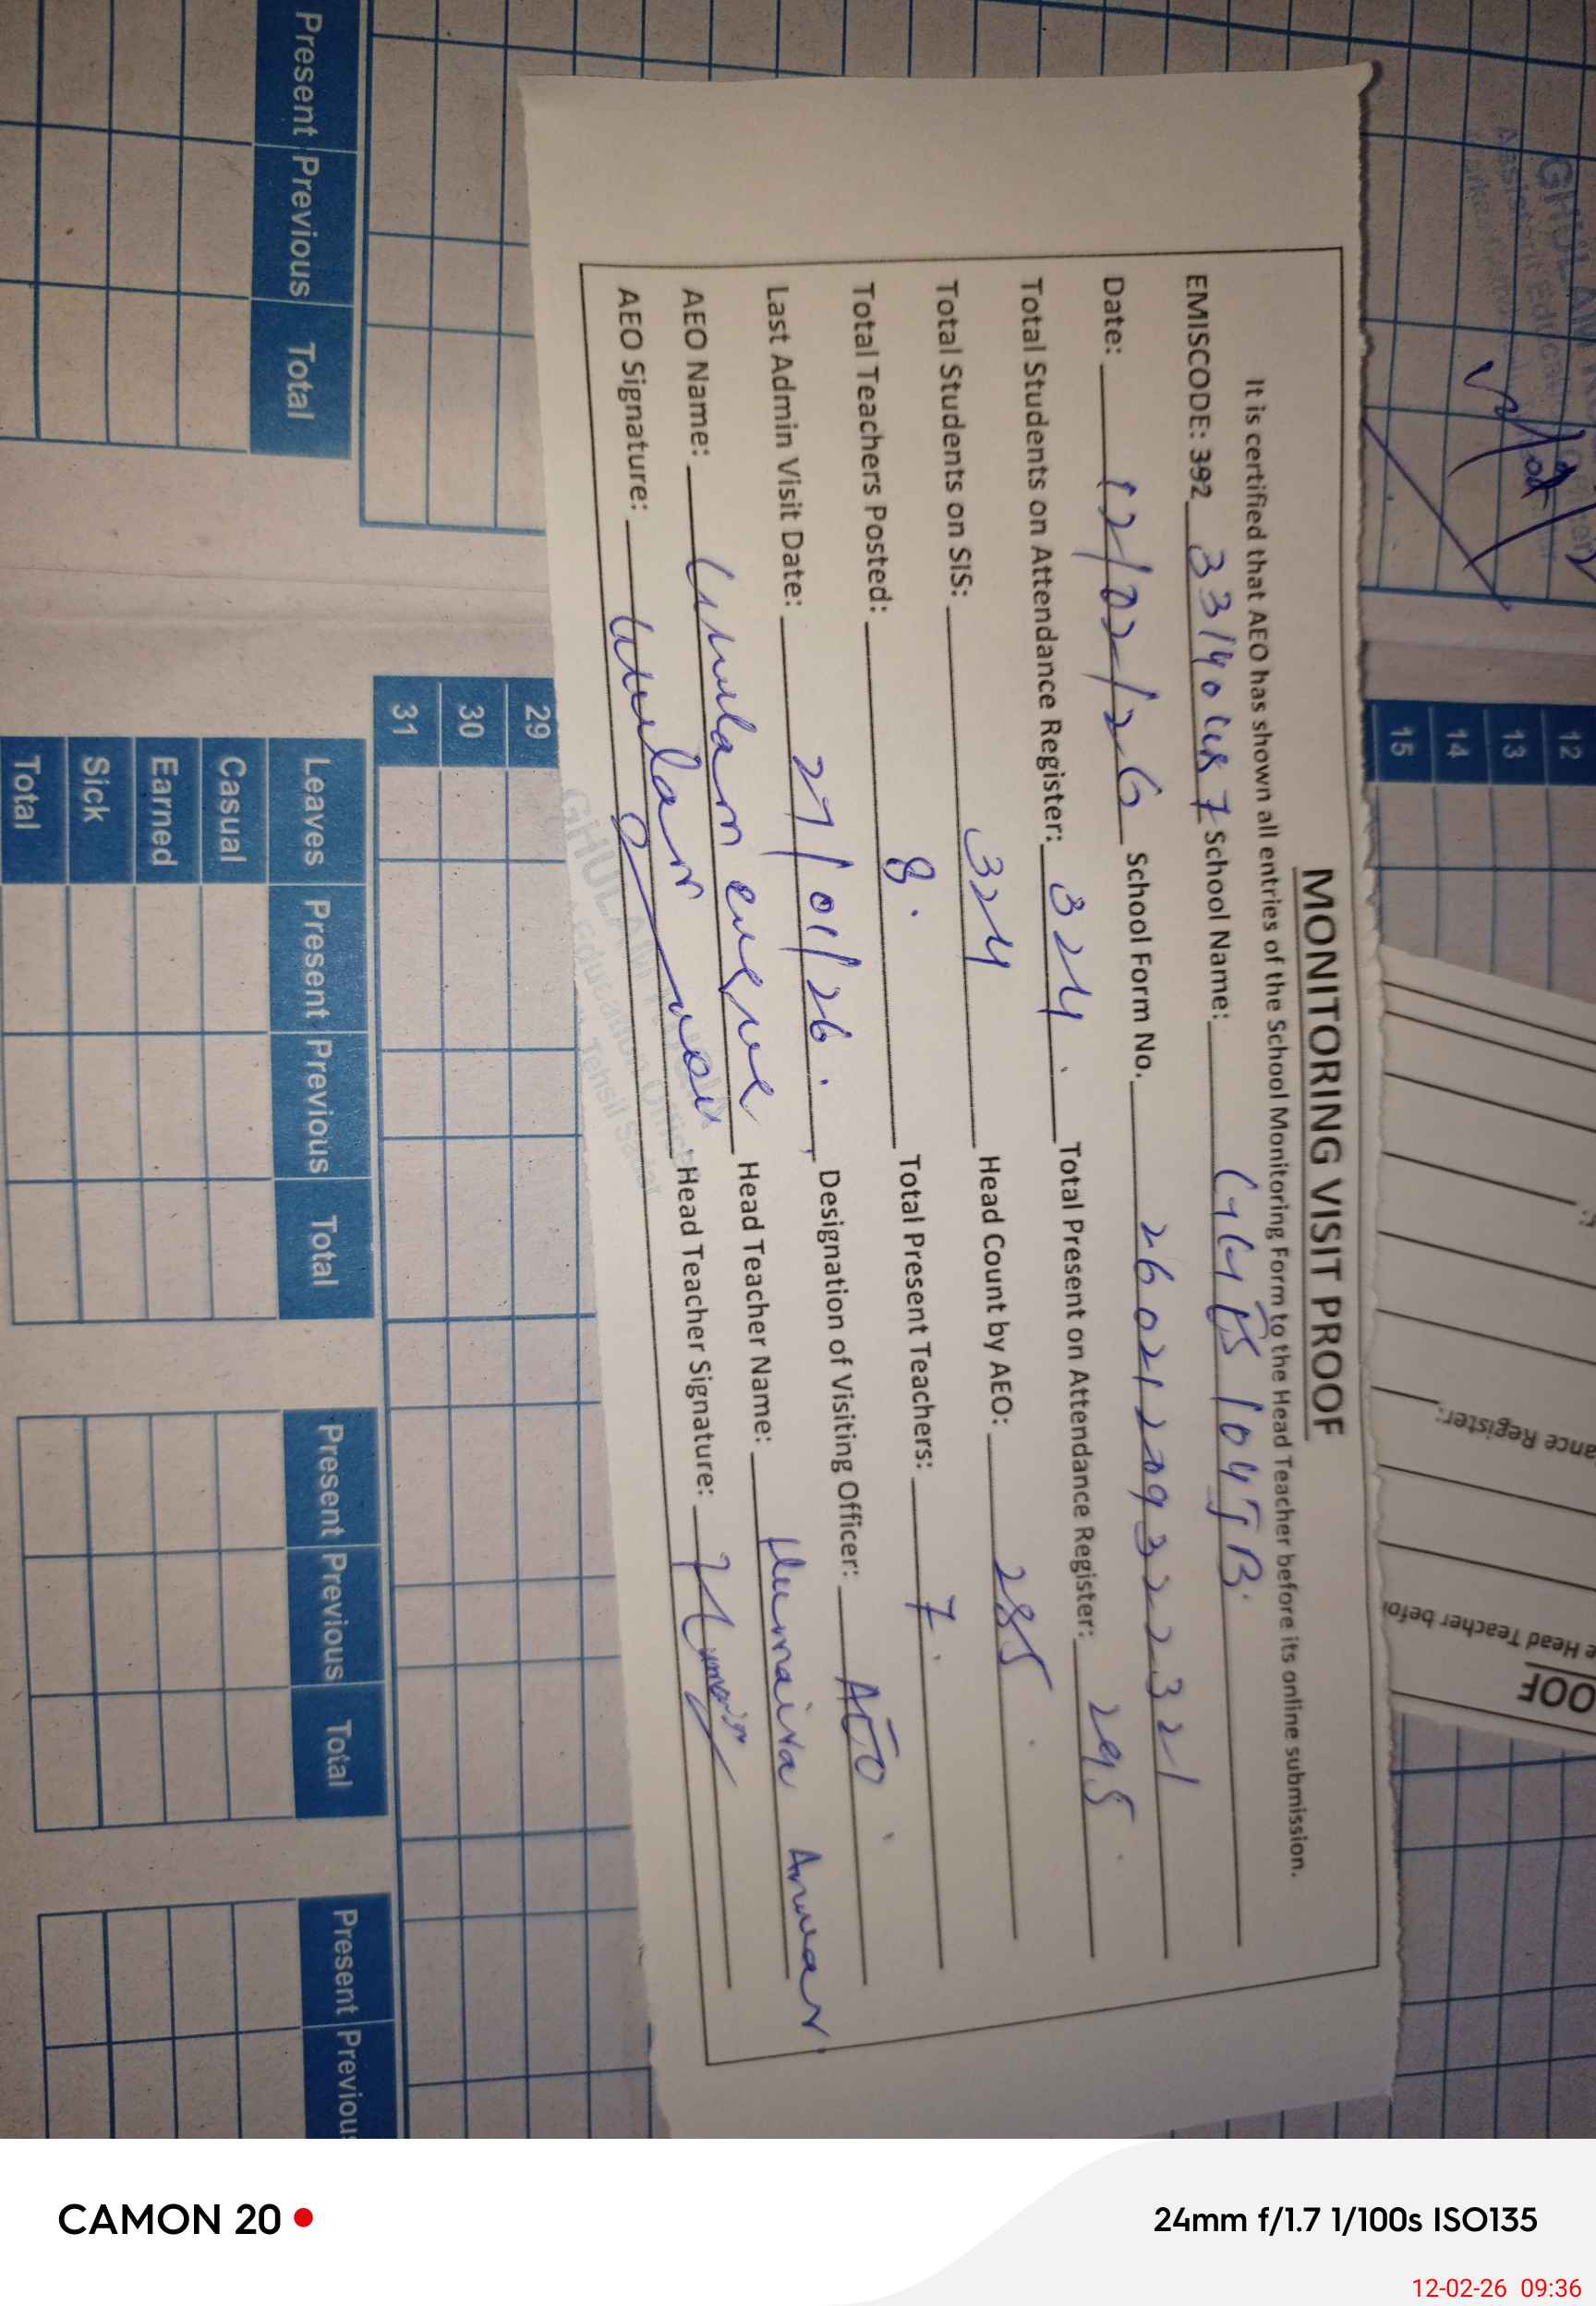 MONITORING VISIT PROOF
It is certified that AEO has shown all entries of the School Monitoring Form to the Head Teacher before its online submission.
EMISCODE: 392 School Name: 104 JB.
Date: 12/02/26 School Form No. 26021209322321
Total Students on Attendance Register: 324. Total Present on Attendance Register: 295.
Total Students on SIS: 324 Head Count by AEO: 285.
Total Teachers Posted: 8. Total Present Teachers: 7.
Last Admin Visit Date: 27/01/26. , Designation of Visiting Officer: AEO
AEO Name: Ghulam Head Teacher Name: Humaira Anwar
AEO Signature: Ghulam Head Teacher Signature: Humaira
GHULAM
Education Officer
Tehsil
GHULAM
Assistant Educat
12
13
14
15
29
30
31
Present Previous Total
Leaves Present Previous Total
Casual
Earned
Sick
Total
Present Previous Total
Present Previous
OOF
e Head Teacher befor
ance Register:
CAMON 20
24mm f/1.7 1/100s ISO135
12-02-26 09:36